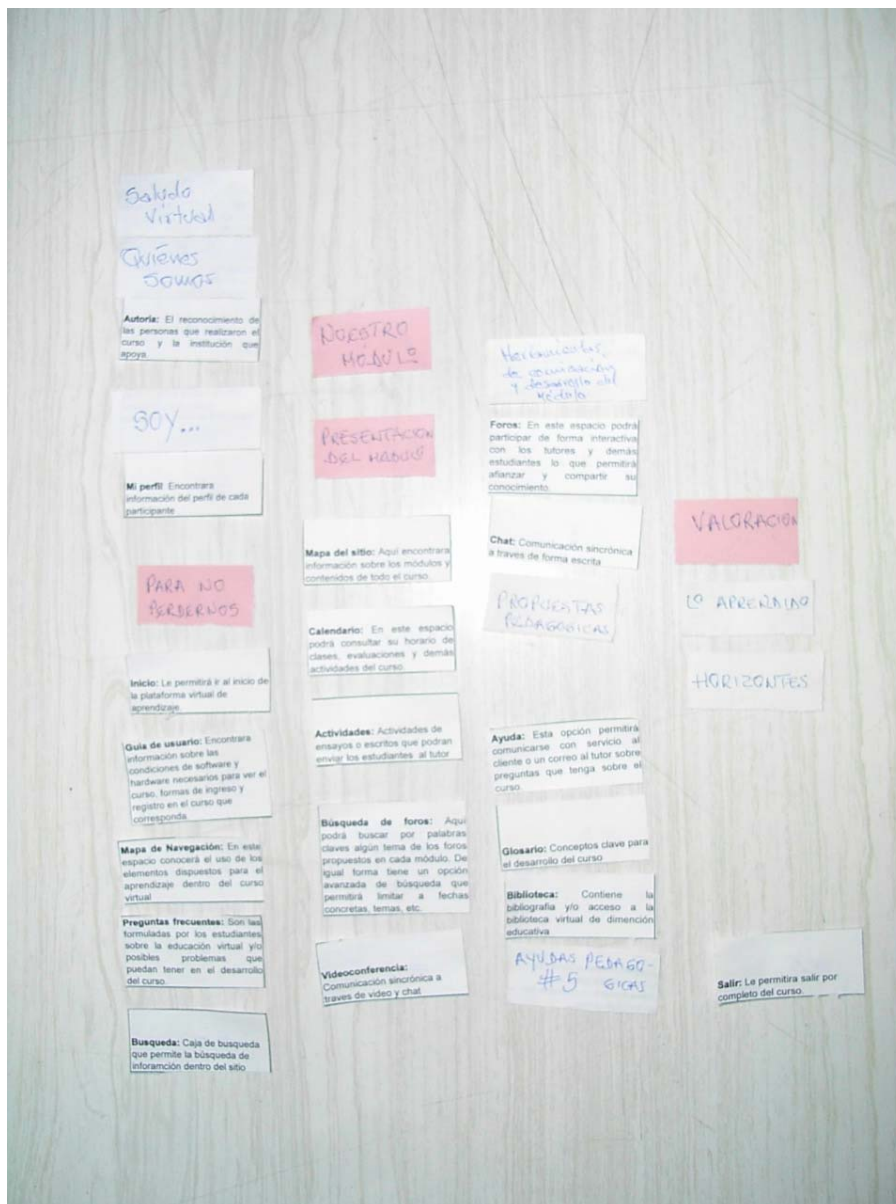 Saludo
Virtual
Quiénes
Somos
Autoria: El reconocimiento de
las personas que realizaron el
curso y la institución que
apoya.
SOY...
Mi perfil: Encontrara
información del perfil de cada
participante
PARA NO
PERDERNOS
Inicio: Le permitirá ir al inicio de
la plataforma virtual de
aprendizaje.
Guia de usuario: Encontrara
información sobre las
condiciones de software y
hardware necesarios para ver el
curso, formas de ingreso y
registro en el curso que
corresponda
Mapa de Navegación: En este
espacio conocerá el uso de los
elementos dispuestos para el
aprendizaje dentro del curso
virtual
Preguntas frecuentes: Son las
formuladas por los estudiantes
sobre la educación virtual y/o
posibles problemas que
puedan tener en el desarrollo
del curso
Busqueda: Caja de busqueda
que permite la búsqueda de
inforamción dentro del sitio
NUESTRO
MÓDULO
PRESENTACION
DEL MODULO
Mapa del sitio: Aquí encontrara
información sobre los módulos y
contenidos de todo el curso
Calendario: En este espacio
podrá consultar su horario de
clases, evaluaciones y demás
actividades del curso.
Actividades: Actividades de
ensayos o escritos que podran
enviar los estudiantes al tutor
Búsqueda de foros: Aquí
podrá buscar por palabras
claves algún tema de los foros
propuestos en cada módulo. De
igual forma tiene un opción
avanzada de búsqueda que
permitirá limitar a fechas
concretas, temas, etc.
Videoconferencia:
Comunicación sincrónica a
traves de video y chat
Herramientas
de comunicación
y desarrollo del
Módulo
Foros: En este espacio podrá
participar de forma interactiva
con los tutores y demás
estudiantes lo que permitirá
afianzar y compartir su
conocimiento
Chat: Comunicación sincrónica
a traves de forma escrita
PROPUESTAS
PEDAGOGICAS
Ayuda: Esta opción permitirá
comunicarse con servicio al
cliente o un correo al tutor sobre
preguntas que tenga sobre el
curso
Glosario: Conceptos clave para
el desarrollo del curso
Biblioteca: Contiene la
bibliografia y/o acceso a la
biblioteca virtual de dimención
educativa
AYUDAS PEDAGO-
#5 GICAS
VALORACION
LO APRENDIDO
HORIZONTES
Salir: Le permitira salir por
completo del curso.